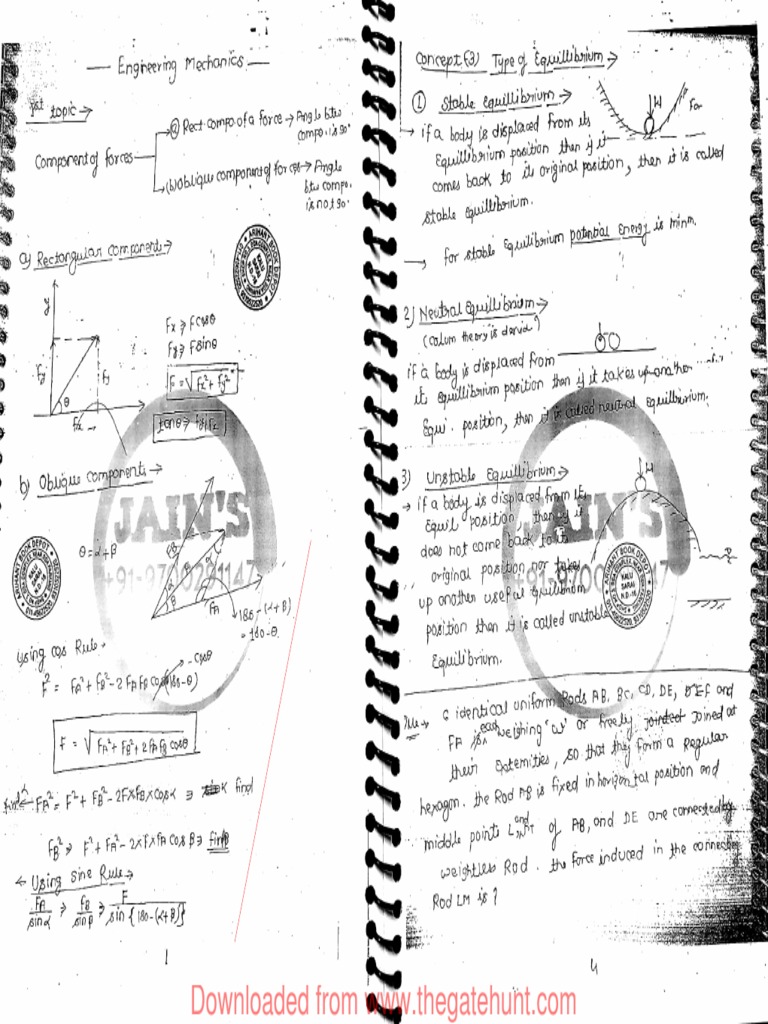 — Engineering Mechanics —
1st topic →
Component of forces
(a) Rect. compo. of a force → Angle btw
compo. is 90°
(b) Oblique component of forces → Angle
btw compo.
is not 90°
a) Rectangular component →
y
Fy
Fy
θ
Fx
Fx ⇒ Fcosθ
Fy ⇒ Fsinθ
F = √Fx² + Fy²
tanθ ⇒ Fy/Fx
b) Oblique component →
θ = α + β
FA
180 - (α + β)
= 180 - θ
Using cos Rule →
-cosθ
F² = FA² + FB² - 2 FA FB cos(180 - θ)
F = √FA² + FB² + 2FA FB cosθ
FA² = F² + FB² - 2F×FB×cosα ⇒ α find
FB² ⇒ F² + FA² - 2×F×FA cosβ ⇒ find
← Using sine Rule →
FA/sinα ⇒ FB/sinβ ⇒ F/sin{180-(α+β)}
1
Concept (3) Type of Equillibrium →
① Stable equillibrium →
W
→ if a body is displaced from its
Equillibrium position then if it
comes back to its original position, then it is called
stable equillibrium.
→ for stable Equilibrium potential Energy is minm.
2) Neutral Equillibrium →
(Colum theory is deriv?)
if a body is displaced from
its equillibrium position then if it takes up another
Equi. position, then it is called neutral equillibrium.
3) Unstable Equillibrium →
W
→ if a body is displaced from its
Equil position then if it
does not come back to its
original position nor takes
up another useful Equilibrium
position then it is called unstable
Equilibrium.
6 identical uniform Rods AB, BC, CD, DE, EF and
FA each weighing 'w' or freely joined at
their Extemities, so that they form a Regular
hexagon. the Rod AB is fixed in horizontal position and
middle points L and M of AB, and DE are connected by
weightless Rod. the force induced in the connecting
Rod LM is?
4
JAIN'S
+91-9700291147
JAIN'S
ARIHANT BOOK DEPOT
KALU
SARAI
N.D.-16
Downloaded from www.thegatehunt.com